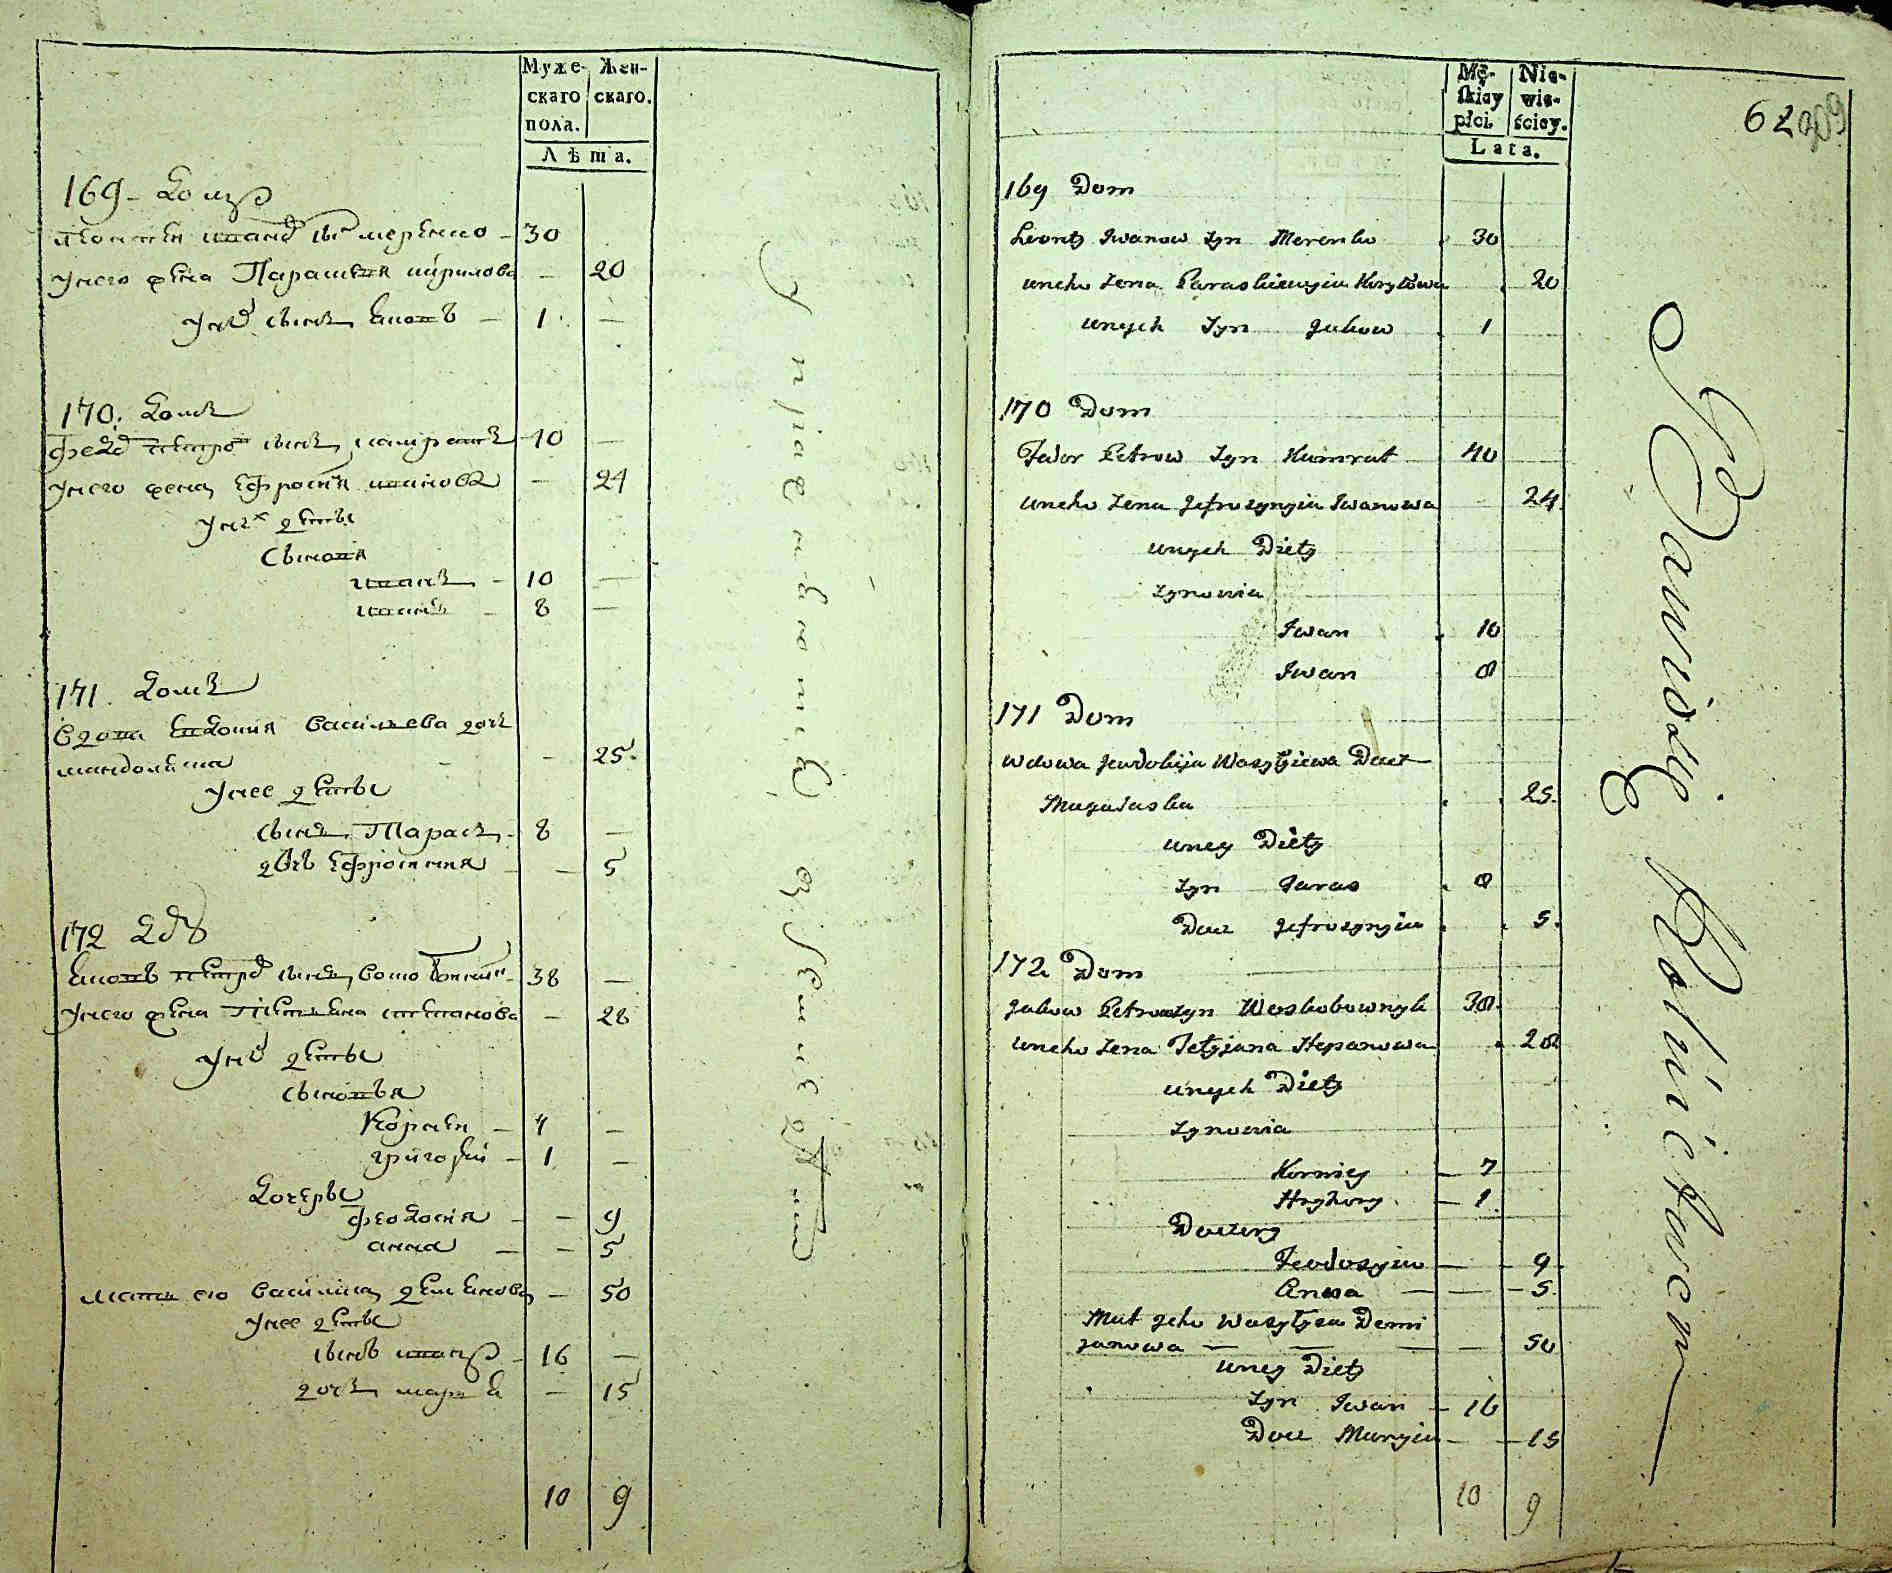 Муже-
скаго
пола.
Жен-
скаго.
Лѣта.
169 - домъ
Леонтей иванов сынъ меренко - 30
унего жена Параскевия кирилова - 20
уних сынъ яковъ - 1 -
170. домъ
федор петров сынъ 40 -
унего жена ефросиния иванова - 24
уних дети
сыновя
иванъ - 10 -
иванъ - 8 -
171. домъ
вдова евдокия василева доч
- - 25.
унее дети
сынъ Тарасъ - 8 -
дочь ефросиния - - 5
172 домъ
яковъ петров сынъ 38 -
унего жена Татьяна степанова - 28
уних дети
сыновья
Корней - 7 -
григорий - 1 -
дочеры
феодосия - - 9
анна - - 5
мать его василиса демянова - 50
унее дети
сынъ иванъ - 16 -
дочъ мария - 15
10 9
упражняютца в земледелии
Mę-
skiey
płci
Nie-
wie-
ściey.
Lata.
62
169 Dom
Leonty Iwanow Syn Merenko 30
uneho Żena Paraskiewyia Kyryłowa 20
unych Syn Jakow 1
170 Dom
Fedor Petrow Syn Kumrat 40
uneho Żena Jefrosynyia Iwanowa 24
unych Diety
Synowia
Iwan 10
Iwan 8
171 Dom
Wdowa Jewdokija Wasylijewa Docz
25.
uney Diety
Syn Taras 8
Docz Jefrosynyia 5.
172 Dom
Jakow Petrow Syn Woskobownyk 38.
uneho Żena Tetyjana Stepanowa 28
unych Diety
Synowia
Korniey - 7
Hryhory - 1
Doczery
Feodosyia - - 9
Anna - - - 5.
Mat Jeho Wasylysa Demi
janowa - - - - 50
uney Diety
Syn Iwan - 16
Docz Maryia - - 15
10 9
Bawidzę Rolnictwem